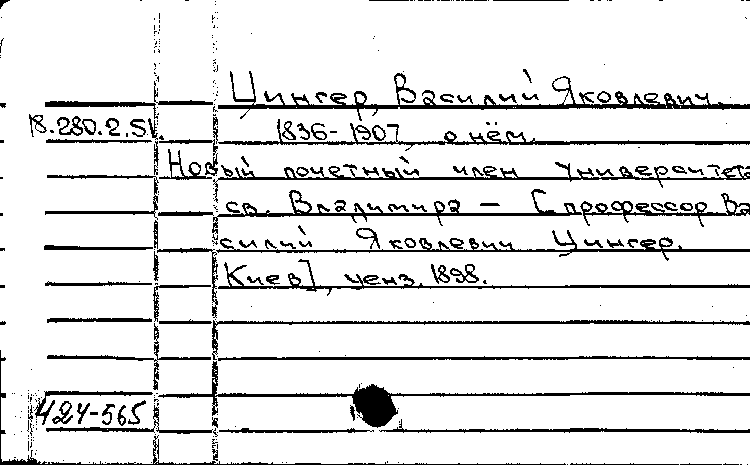 Цингер, Василий Яковлевич.
18.280.2.51.
1836-1907, о нём.
Новый почетный член Университета
св. Владимира — [профессор Ва
силий Яковлевич Цингер.
Киев], ценз. 1898.
424-565